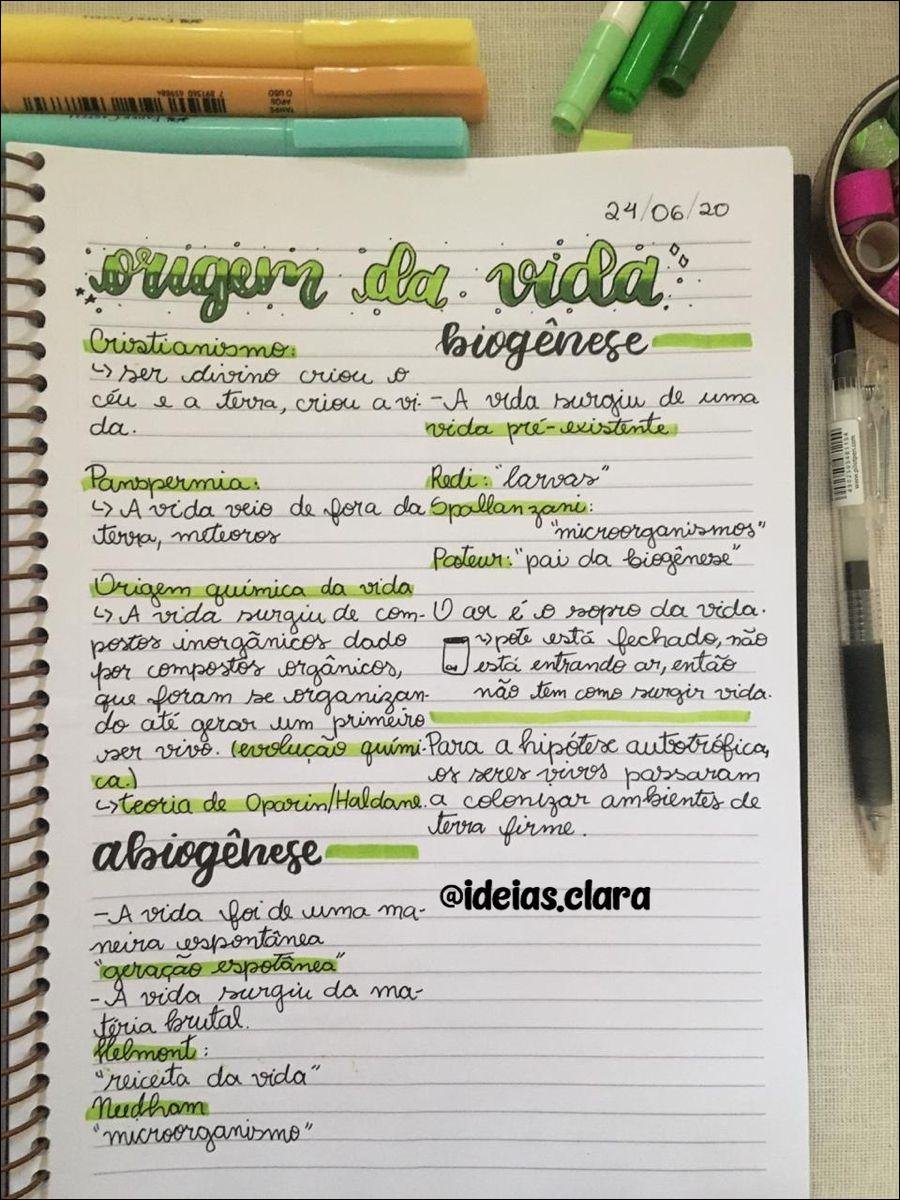 24/06/20
origem da vida
Cristianismo:
↳ ser divino criou o
céu e a terra, criou a vi-
da.
Panspermia:
↳ A vida veio de fora da
terra, meteoros
Origem química da vida
↳ A vida surgiu de com-
postos inorgânicos dado
por compostos orgânicos,
que foram se organizan-
do até gerar um primeiro
ser vivo. (evolução quími-
ca.)
↳ teoria de Oparin/Haldane.
abiogênese
- A vida foi de uma ma-
neira espontânea
"geração espotânea"
- A vida surgiu da ma-
téria brutal.
Helmont:
"reiceita da vida"
Needham
"microorganismo"
biogênese
- A vida surgiu de uma
vida pré-existente
Redi: "larvas"
Spallanzani:
"microorganismos"
Pasteur: "pai da biogênese"
O ar é o sopro da vida.
↳ pote está fechado, não
está entrando ar, então
não tem como surgir vida.
Para a hipótese autotrófica,
os seres vivos passaram
a colonizar ambientes de
terra firme.
@ideias.clara
7 891360 659884